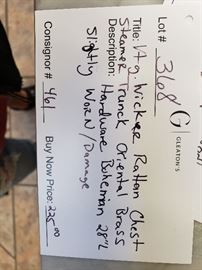 Lot # 368
G
GLEATON'S
Title: Vtg. Wicker Rattan Chest
Steamer Trunck Oriental Brass
Description: Hardware Bohemian 28"L
Slightly Worn/Damage
Consignor # 461
Buy Now Price: 225.00